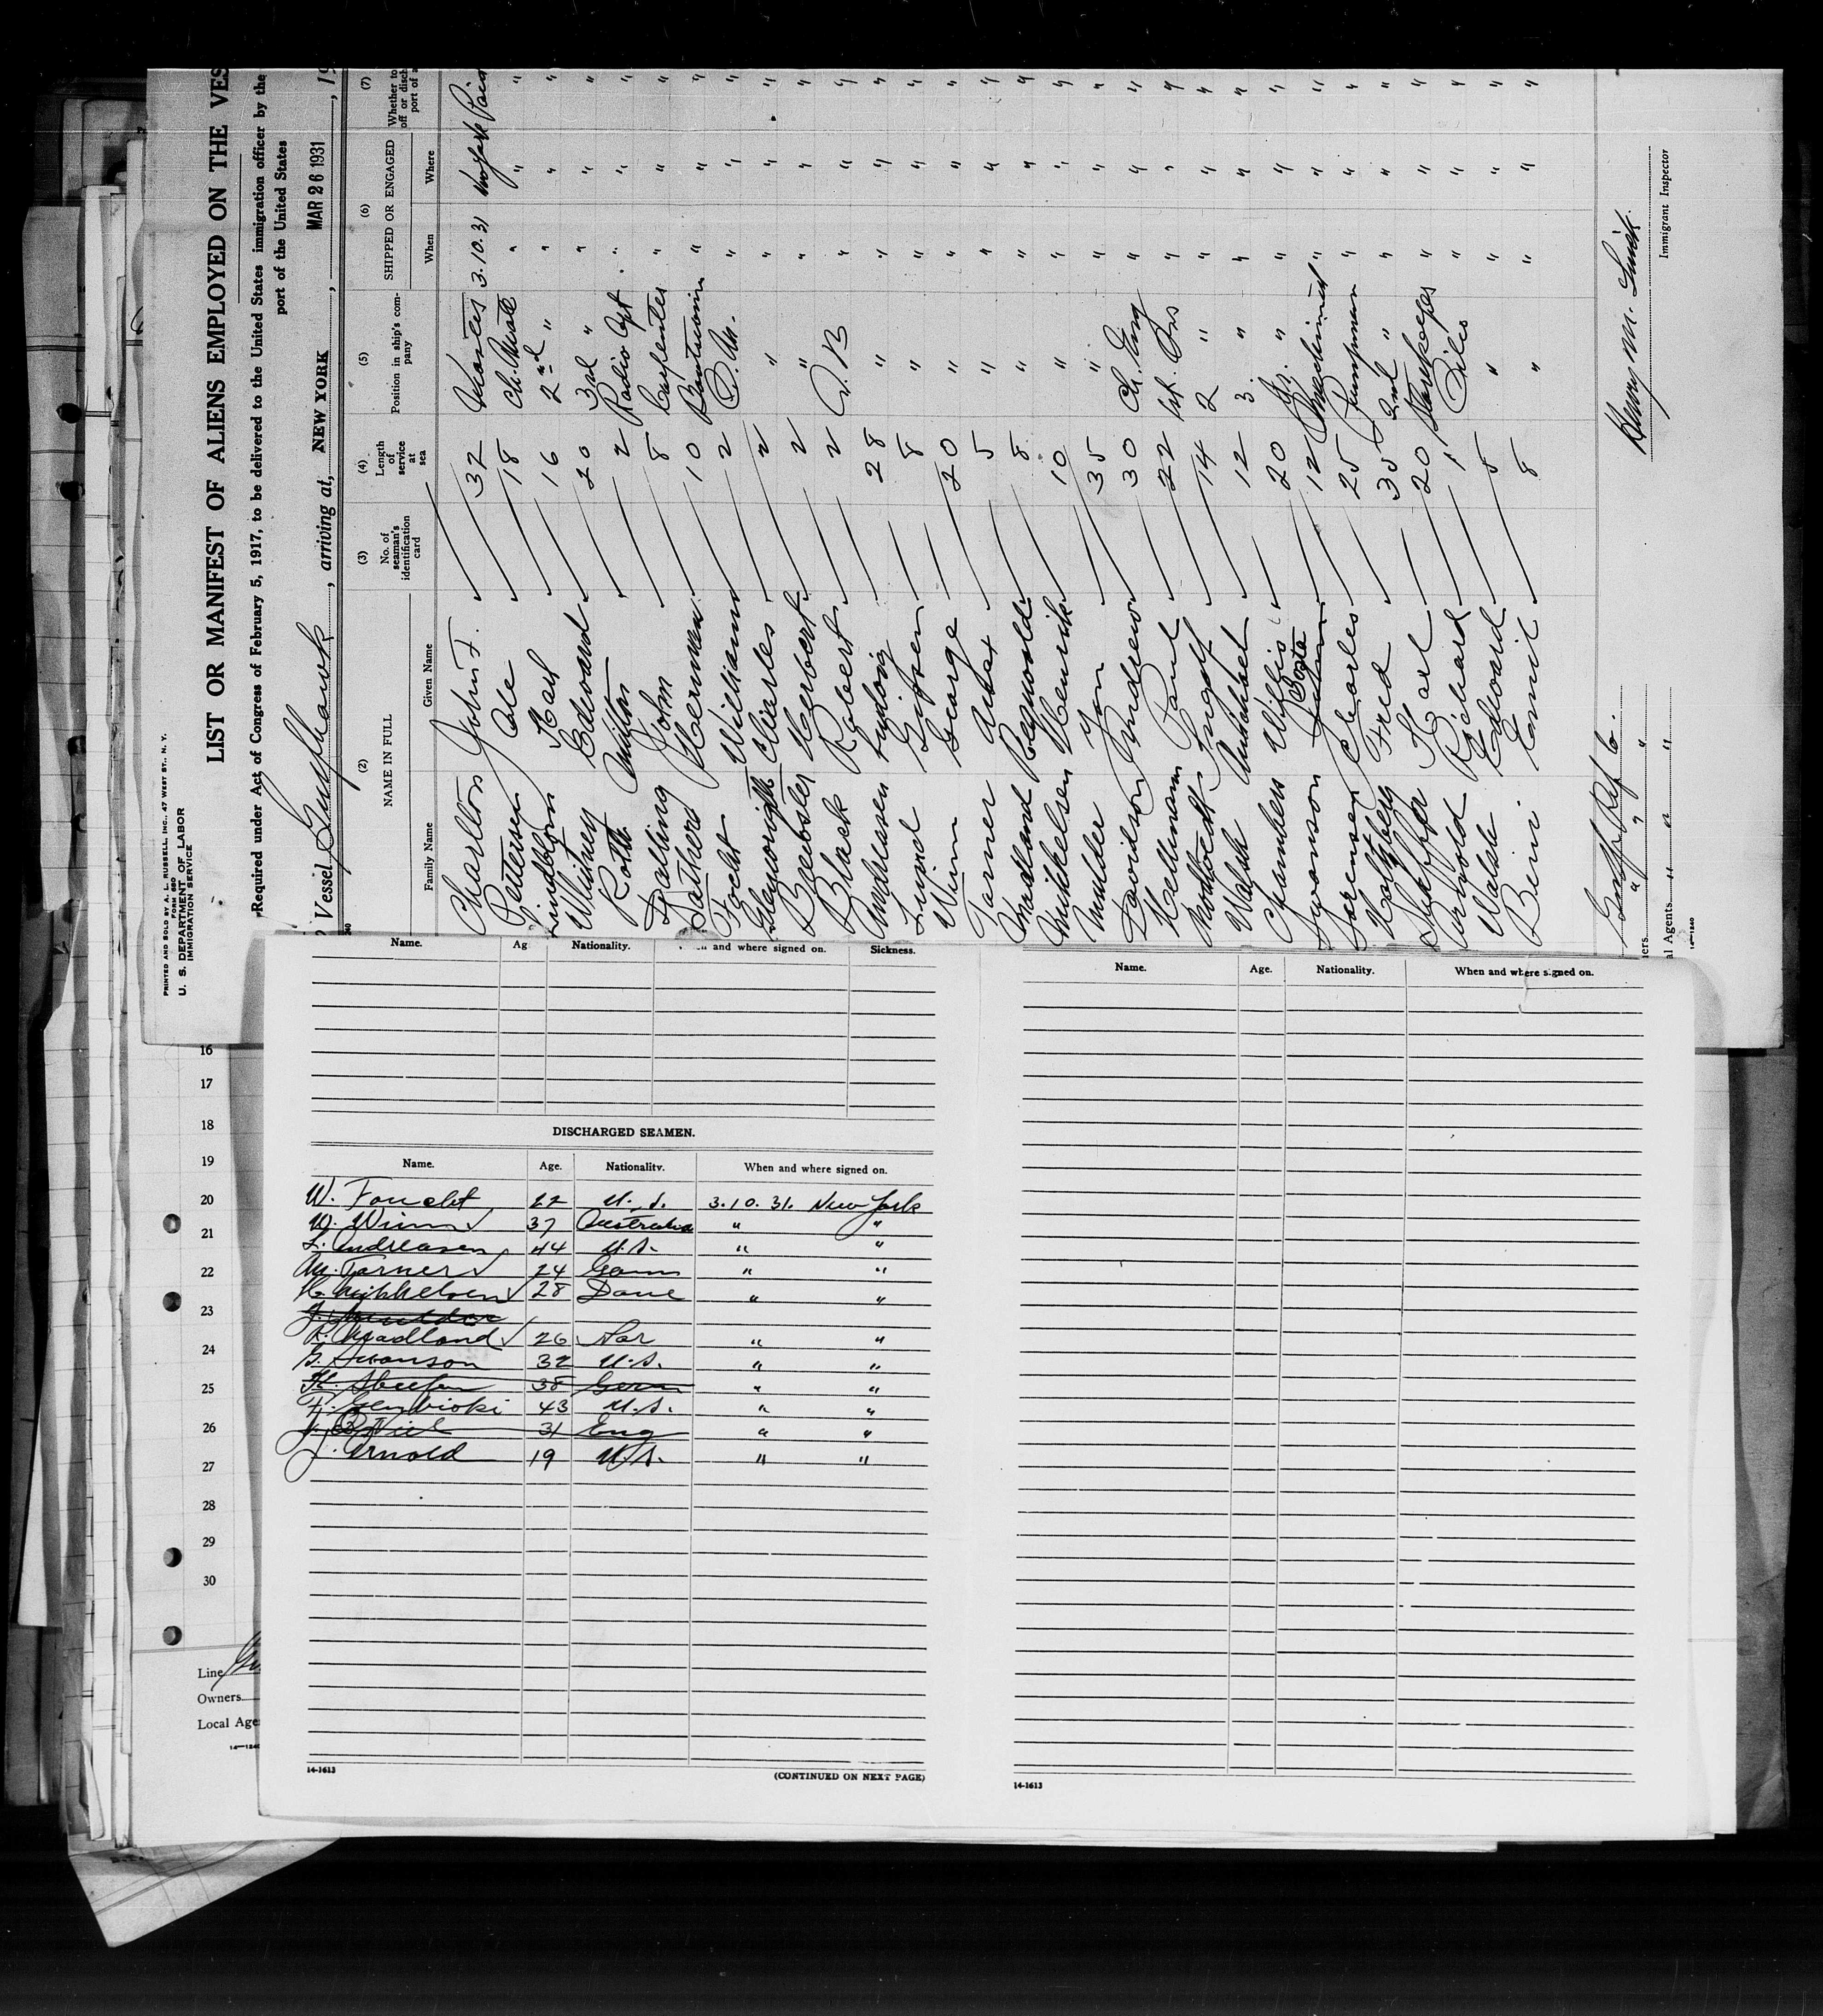 PRINTED AND SOLD BY A. L. RUSSELL, INC., 47 WEST ST., N. Y.
FORM 680
U. S. DEPARTMENT OF LABOR
IMMIGRATION SERVICE
LIST OR MANIFEST OF ALIENS EMPLOYED ON THE VES
Required under Act of Congress of February 5, 1917, to be delivered to the United States immigration officer by the
port of the United States
Vessel Gulfhawk, arriving at, NEW YORK, MAR 26 1931, 19
(2) (3) (4) (5) (6) (7)
NAME IN FULL No. of seaman's identification card Length of service at sea Position in ship's company SHIPPED OR ENGAGED Whether to
off or disch
port of a
Family Name Given Name When Where
Charlton John F. 32 Master 3.10.31 New York Paid
Pettersen Ole 18 Ch. Mate " " "
Lindblom Karl 16 2nd " " " "
Whitney Edward 20 3rd " " " "
Roth Milton 2 Radio Opt " " "
Dalling John 8 Carpenter " " "
Sathers Herman 10 Boatswain " " "
Focht William 2 Q. M. " " "
Gleywright Charles 2 " " " "
Brewster Herbert 2 " " " "
Black Robert 2 A. B " " "
Andreasen Ludwig 28 " " " "
8 " " " "
Winn George 20 " " " "
Tarner Max 5 " " " "
Madland Regnvold 8 " " " "
Mikkelsen Henrik 10 " " " "
Mulder Jan 35 " " " "
Davidson Andrew 30 Ch. Eng " " "
Hellmann Paul 22 1st. Ass " " "
Modtvedt Ingolf 14 2 " " " "
Walsh Michael 12 3 " " " "
Chambers Willis 20 Jr. " " " "
Swanson Gosta 12 Machinist " " "
Sorensen Charles 25 Pumpman " " "
Fred 35 2nd " " " "
Karl 20 Storekeeper " " "
Arnold Richard 1 Oiler " " "
Walsh Edward 5 " " " "
Beni Emil 8 " " " "
Gulf Ref Co.
ners " " "
al Agents " " "
14—1240
Henry M. Smith
Immigrant Inspector
Name. Ag Nationality. and where signed on. Sickness.
Name. Age. Nationality. When and where signed on.
DISCHARGED SEAMEN.
Name. Age. Nationality. When and where signed on.
W. Foucht 22 U. S. 3.10.31. New York
Winn 37 Australia " "
L. Andreasen 44 U.S. " "
M. Tarner 24 Germ " "
H. Mikkelsen 28 Dane " "
J. Mulder
R. Madland 26 Nor " "
G. Swanson 32 U.S. " "
38 Germ " "
43 U.S. " "
31 Eng " "
Arnold 19 U.S. " "
14-1613
(CONTINUED ON NEXT PAGE)
14-1613
16
17
18
19
20
21
22
23
24
25
26
27
28
29
30
Line Gu
Owners
Local Age
14—1240